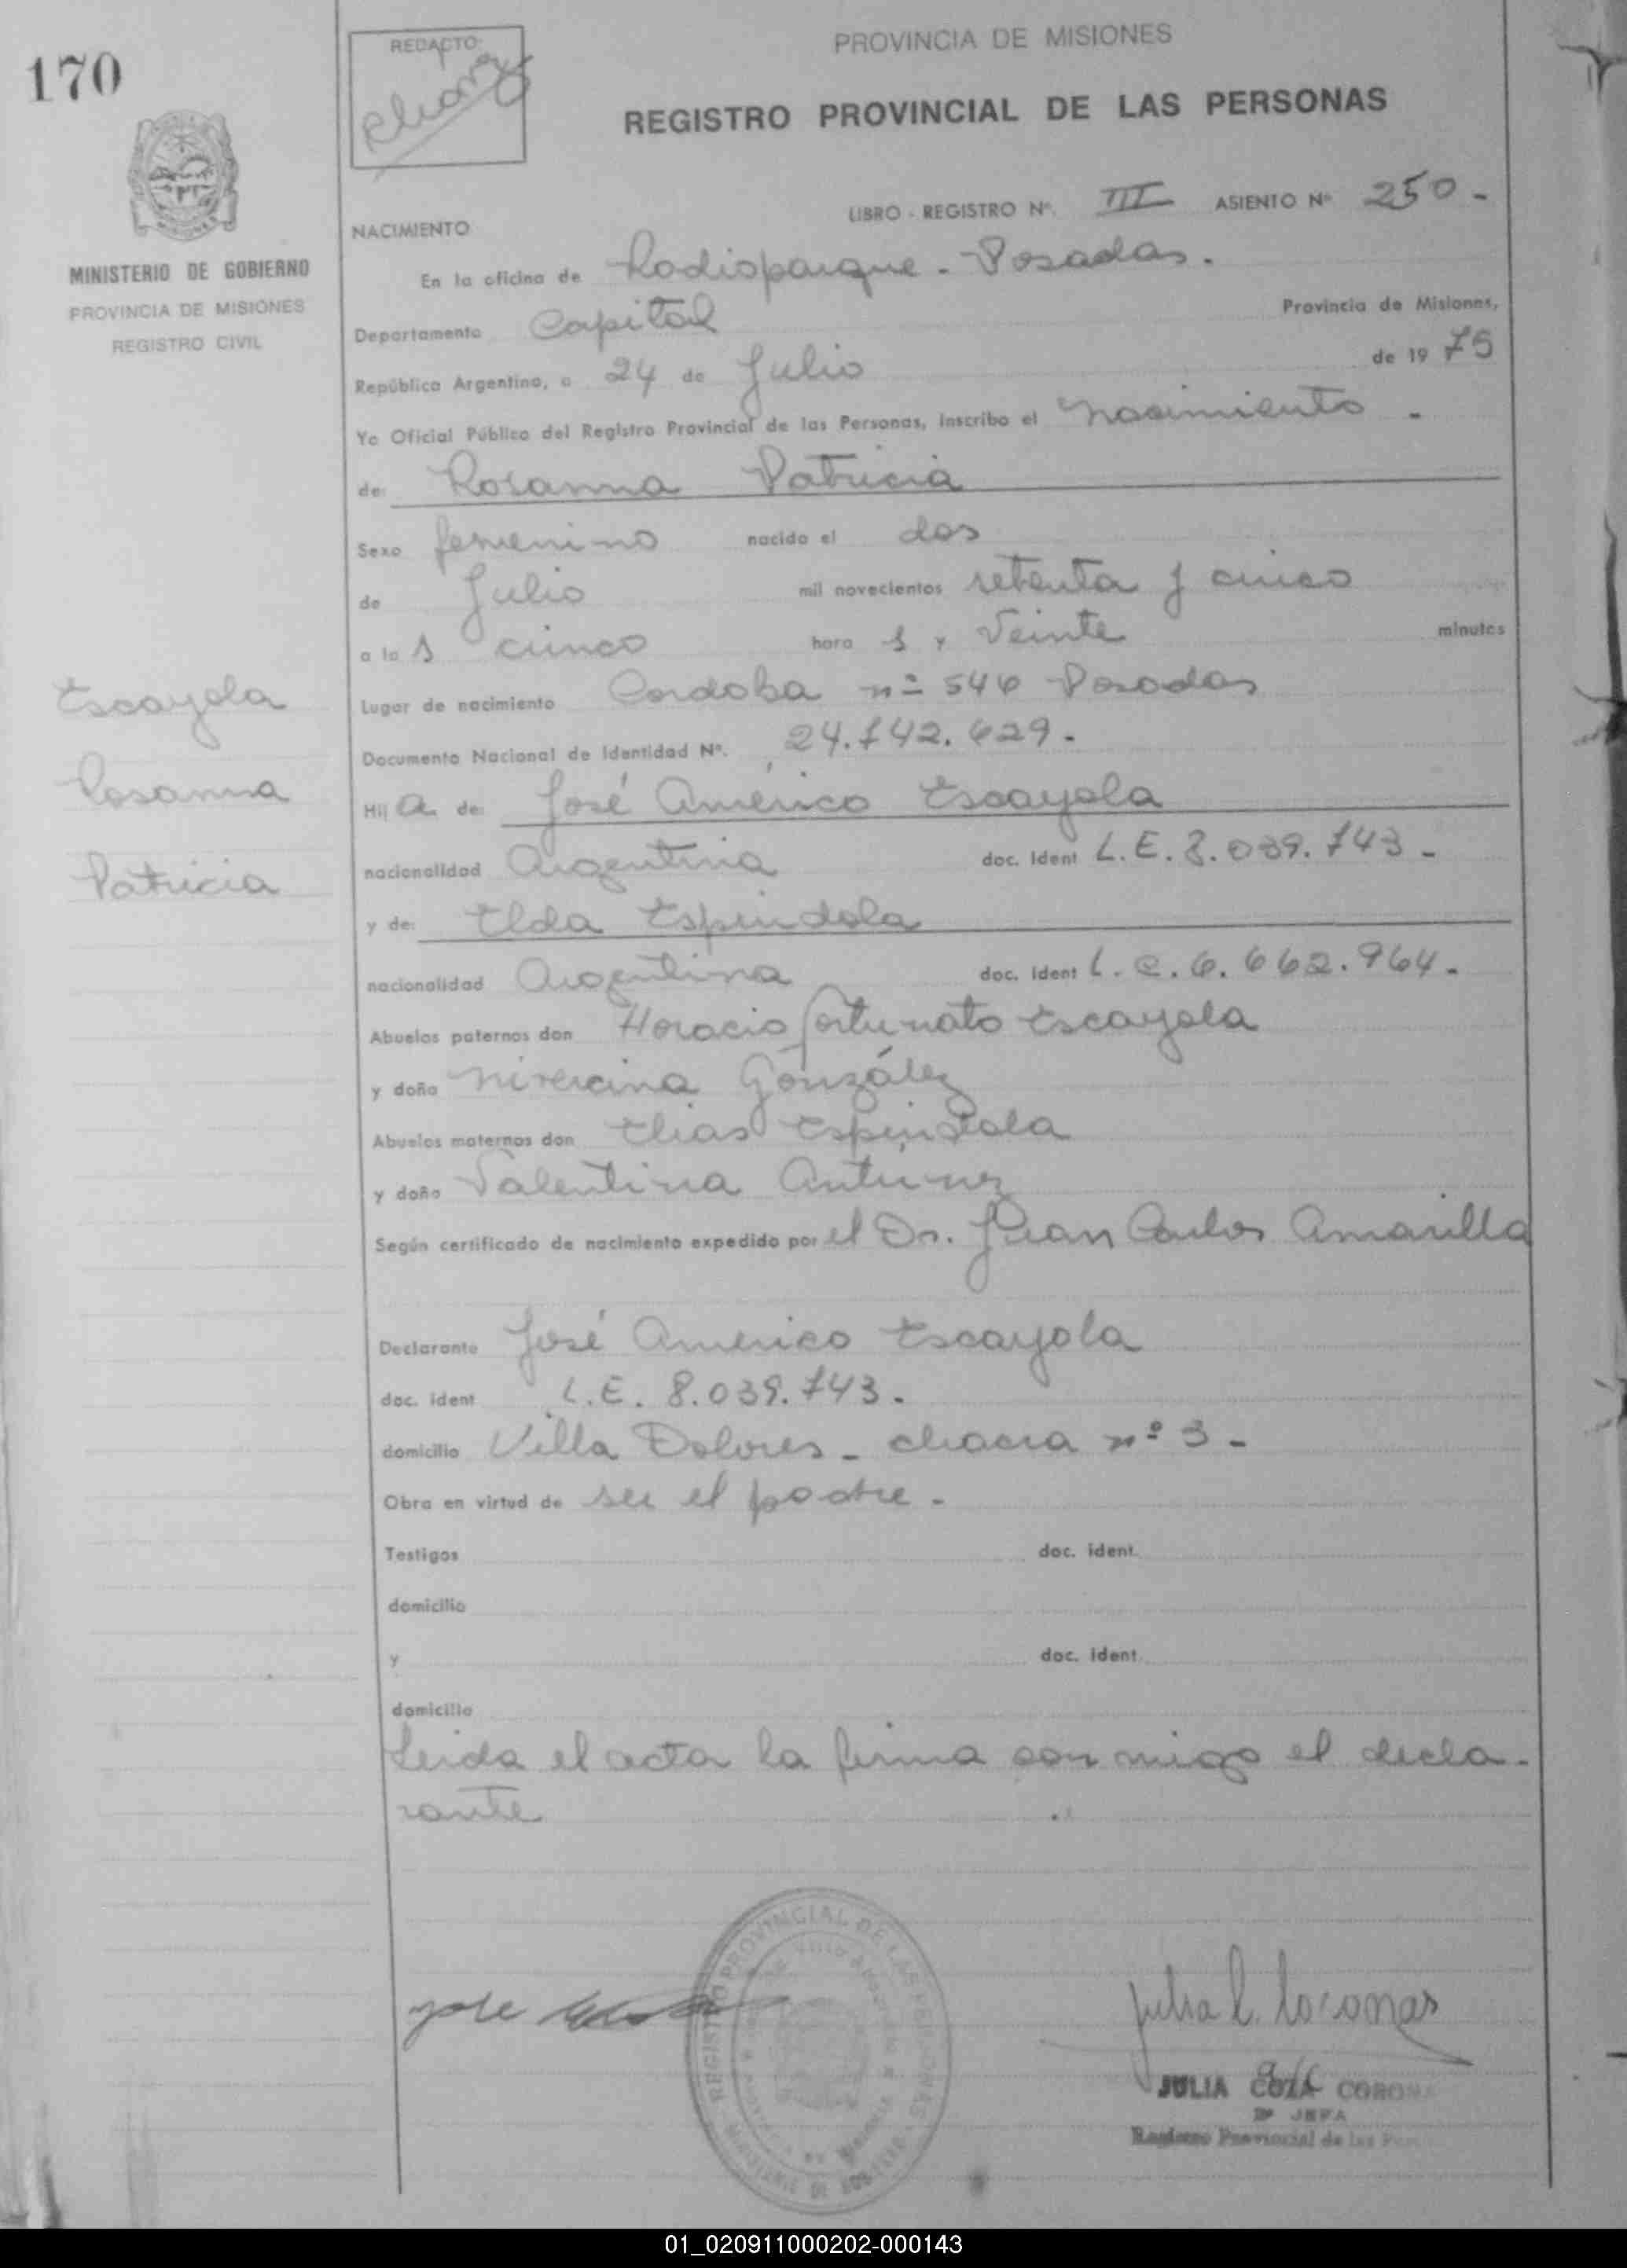 170
REDACTO
PROVINCIA DE MISIONES
REGISTRO PROVINCIAL DE LAS PERSONAS
MINISTERIO DE GOBIERNO
PROVINCIA DE MISIONES
REGISTRO CIVIL
LIBRO - REGISTRO Nº. III ASIENTO Nº 250 -
NACIMIENTO
En la oficina de Radioparque - Posadas.
Departamento Capital Provincia de Misiones,
República Argentina, a 24 de Julio de 1975
Yo Oficial Público del Registro Provincial de las Personas, inscribo el nacimiento -
de: Rosanna Patricia
Sexo femenino nacido el dos
de Julio mil novecientos setenta y cinco
a las cinco hora s y Veinte minutos
Escayola
Rosanna
Patricia
Lugar de nacimiento Cordoba nº 546 Posadas
Documento Nacional de Identidad Nº. 24.742.629 -
Hija de: José Américo Escayola
nacionalidad Argentina doc. Ident L.E. 8.039.743 -
y de: Elda Espindola
nacionalidad Argentina doc. Ident L.C. 6.662.964 -
Abuelos paternos don Horacio Fortunato Escayola
y doña González
Abuelos maternos don Elias Espindola
y doña Valentina Antunez
Según certificado de nacimiento expedido por el Dr. Juan Carlos Amarilla
Declarante José Américo Escayola
doc. ident L.E. 8.039.743 -
domicilio Villa Dolores - chacra nº 3 -
Obra en virtud de ser el padre -
Testigos doc. ident.
domicilio
y doc. ident.
domicilio
Leida el acta la firma con migo el decla-
rante
REGISTRO PROVINCIAL DE LAS PERSONAS
JULIA CORONA
JEFA
Registro Provincial de las
01_020911000202-000143